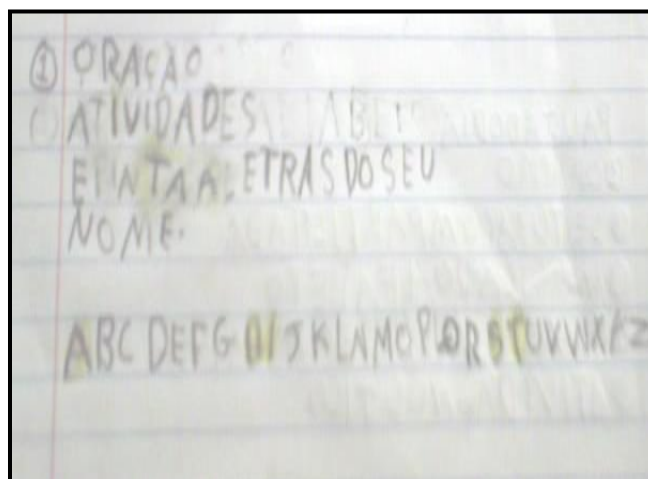 ① ORAÇÃO
ATIVIDADES
ETRAS DO SEU
NOME.
A B C D E F G H I J K L N M O P Q R S T U V W X Y Z